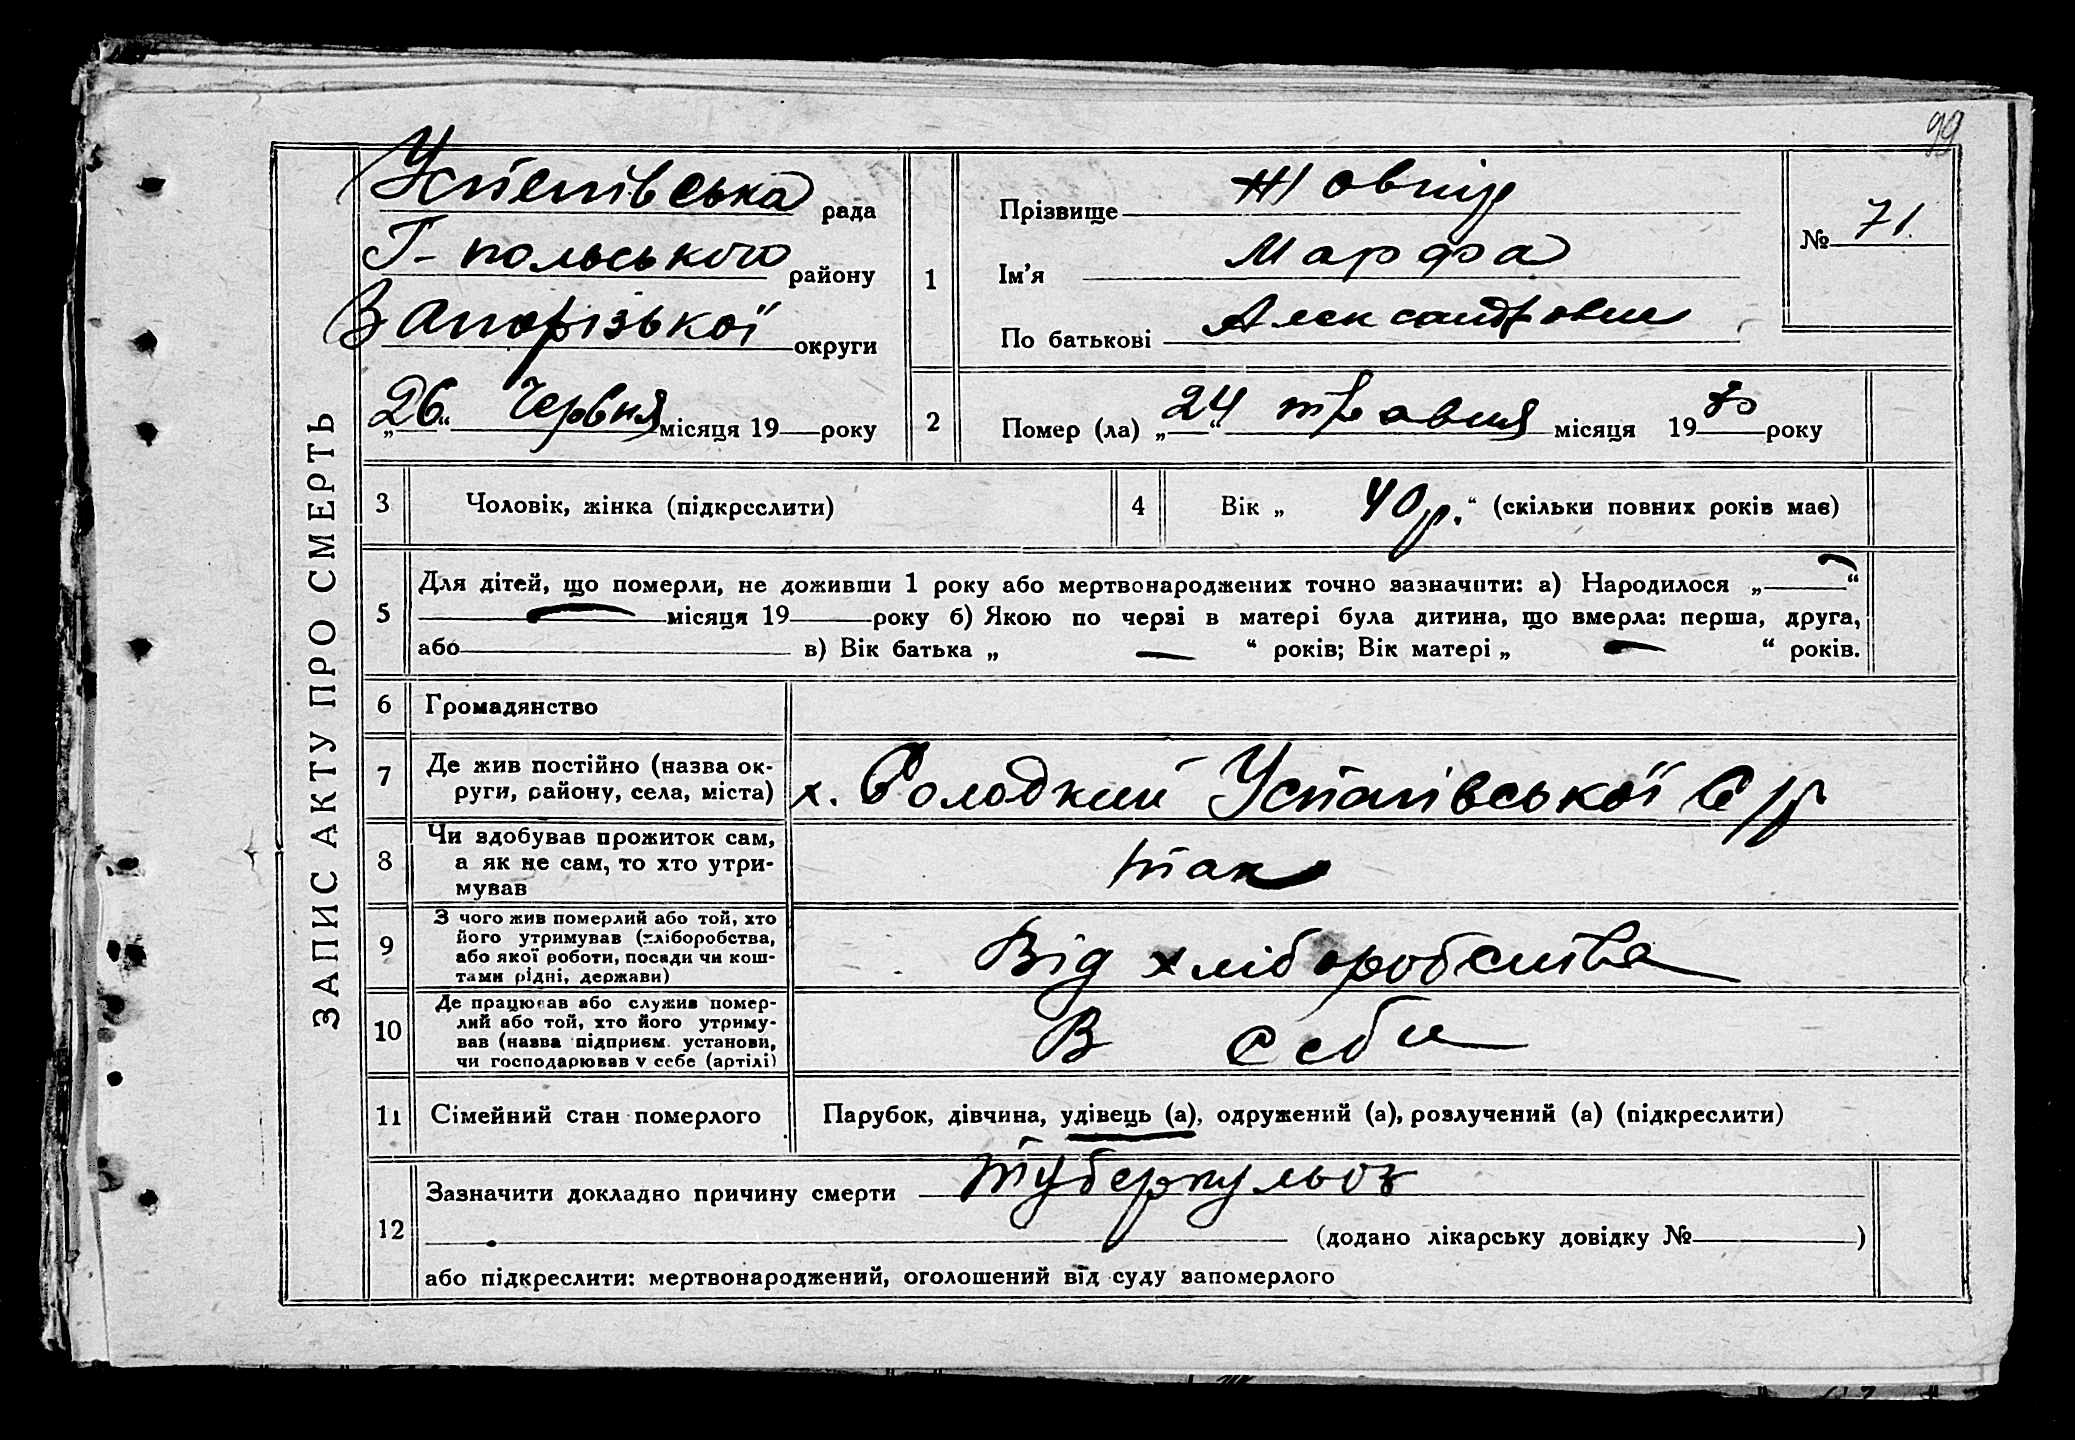 99
ЗАПИС АКТУ ПРО СМЕРТЬ
Успенівська рада
Г-польського району
Запорізької округи
„26“ Червня місяця 19 року
1
Прізвище
Ім'я Марфа
По батькові Александровна
№ 71
2
Помер (ла) „24“ травня місяця 19 року
3 Чоловік, жінка (підкреслити)
4 Вік „40р.“ (скільки повних років має)
5 Для дітей, що померли, не доживши 1 року або мертвонароджених точно зазначити: а) Народилося „—“
— місяця 19 року б) Якою по черзі в матері була дитина, що вмерла: перша, друга,
або в) Вік батька „ — “ років; Вік матері „ — “ років.
6 Громадянство
7 Де жив постійно (назва ок-
руги, району, села, міста)
х. Солодкий Успенівської С/р
8 Чи здобував прожиток сам,
а як не сам, то хто утри-
мував
так
9 З чого жив померлий або той, хто
його утримував (хліборобства,
або якої роботи, посади чи кош-
тами рідні, держави)
Від хліборобства
10 Де працював або служив помер-
лий або той, хто його утриму-
вав (назва підприєм. установи,
чи господарював у себе (артілі)
В себи
11 Сімейний стан померлого
Парубок, дівчина, удівець (а), одружений (а), розлучений (а) (підкреслити)
12 Зазначити докладно причину смерти туберкульоз
(додано лікарську довідку № )
або підкреслити: мертвонароджений, оголошений від суду запомерлого